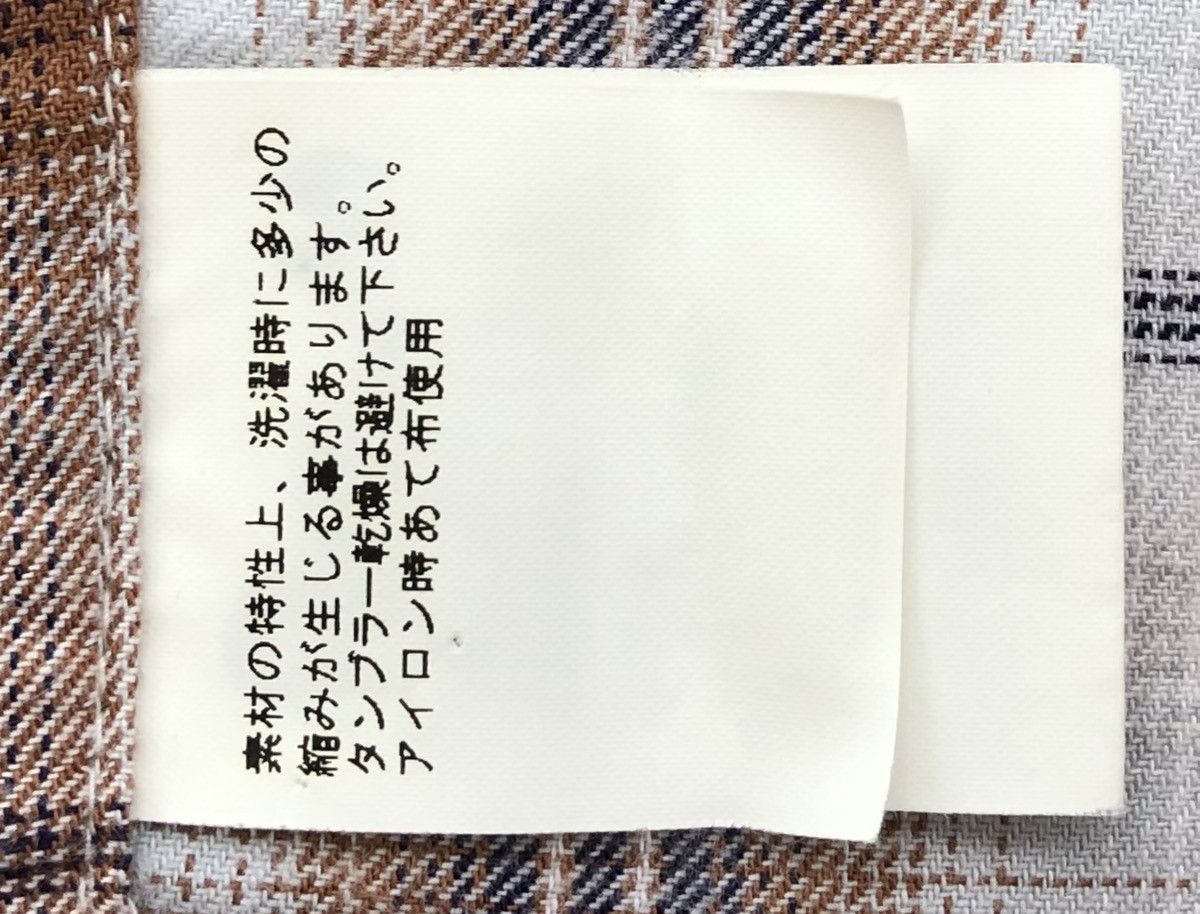 素材の特性上、洗濯時に多少の
縮みが生じる事があります。
タンブラー乾燥は避けて下さい。
アイロン時あて布使用